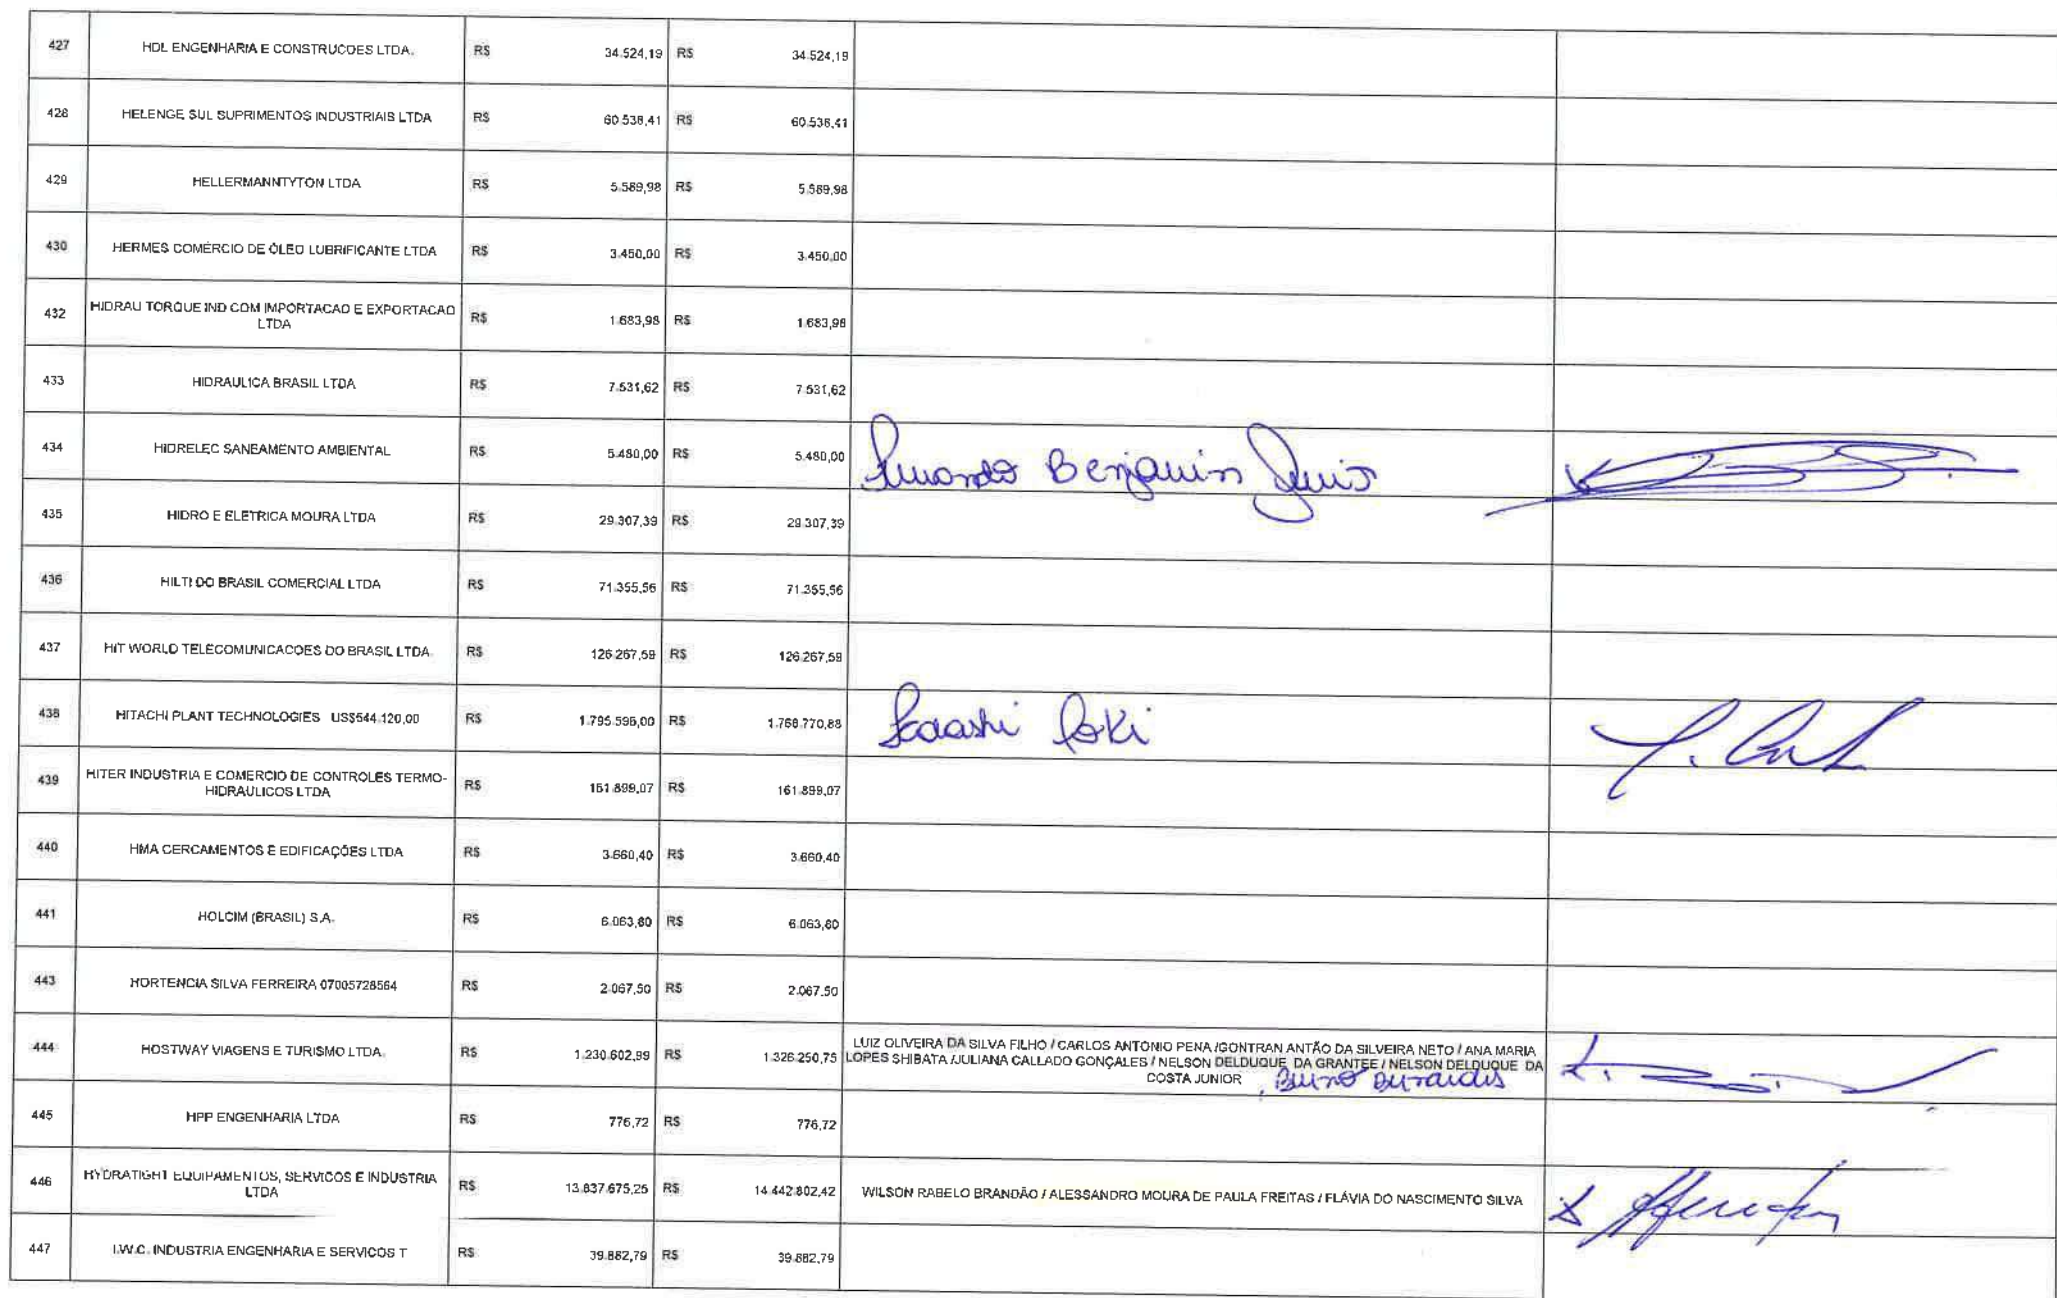 427 HDL ENGENHARIA E CONSTRUCOES LTDA. R$ 34.524,19 R$ 34.524,19
428 HELENGE SUL SUPRIMENTOS INDUSTRIAIS LTDA R$ 60.538,41 R$ 60.538,41
429 HELLERMANNTYTON LTDA R$ 5.589,98 R$ 5.589,98
430 HERMES COMÉRCIO DE ÓLEO LUBRIFICANTE LTDA R$ 3.450,00 R$ 3.450,00
432 HIDRAU TORQUE IND COM IMPORTACAO E EXPORTACAO
LTDA R$ 1.683,98 R$ 1.683,98
433 HIDRAULICA BRASIL LTDA R$ 7.531,62 R$ 7.531,62
434 HIDRELEC SANEAMENTO AMBIENTAL R$ 5.480,00 R$ 5.480,00 Benjamin
435 HIDRO E ELETRICA MOURA LTDA R$ 29.307,39 R$ 29.307,39
436 HILTI DO BRASIL COMERCIAL LTDA R$ 71.355,56 R$ 71.355,56
437 HIT WORLD TELECOMUNICACOES DO BRASIL LTDA. R$ 126.267,59 R$ 126.267,59
438 HITACHI PLANT TECHNOLOGIES US$544.120,00 R$ 1.795.596,00 R$ 1.768.770,88
439 HITER INDUSTRIA E COMERCIO DE CONTROLES TERMO-
HIDRAULICOS LTDA R$ 161.899,07 R$ 161.899,07
440 HMA CERCAMENTOS E EDIFICAÇÕES LTDA R$ 3.660,40 R$ 3.660,40
441 HOLCIM (BRASIL) S.A. R$ 6.063,80 R$ 6.063,80
443 HORTENCIA SILVA FERREIRA 07005728564 R$ 2.067,50 R$ 2.067,50
444 HOSTWAY VIAGENS E TURISMO LTDA. R$ 1.230.602,99 R$ 1.326.250,75 LUIZ OLIVEIRA DA SILVA FILHO / CARLOS ANTONIO PENA /GONTRAN ANTÃO DA SILVEIRA NETO / ANA MARIA
LOPES SHIBATA /JULIANA CALLADO GONÇALES / NELSON DELDUQUE DA GRANTEE / NELSON DELDUQUE DA
COSTA JUNIOR , Bruno
445 HPP ENGENHARIA LTDA R$ 776,72 R$ 776,72
446 HYDRATIGHT EQUIPAMENTOS, SERVICOS E INDUSTRIA
LTDA R$ 13.837.675,25 R$ 14.442.802,42 WILSON RABELO BRANDÃO / ALESSANDRO MOURA DE PAULA FREITAS / FLÁVIA DO NASCIMENTO SILVA
447 I.W.C. INDUSTRIA ENGENHARIA E SERVICOS T R$ 39.882,79 R$ 39.882,79